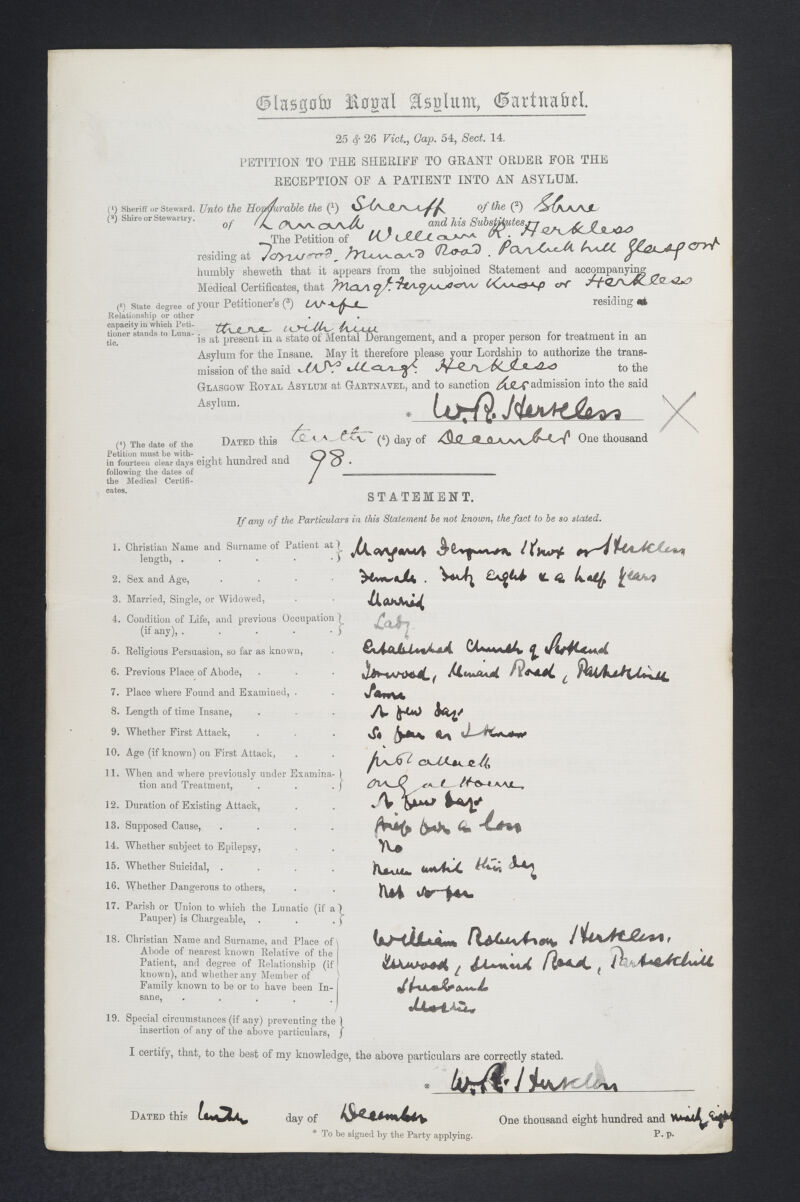 Glasgow Royal Asylum, Gartnavel.
25 & 26 Vict., Cap. 54, Sect. 14.
PETITION TO THE SHERIFF TO GRANT ORDER FOR THE
RECEPTION OF A PATIENT INTO AN ASYLUM.
(1) Sheriff or Steward.
(2) Shire or Stewartry.
Unto the Honourable the (1) Sheriff of the (2) Shire
of Lanark and his Substitutes,
The Petition of William R. Herkless
residing at Torwood, Minard Road, Partickhill Glasgow
humbly sheweth that it appears from the subjoined Statement and accompanying
Medical Certificates, that Margt. Ferguson Knox or Herkless
(3) State degree of
Relationship or other
capacity in which Peti-
tioner stands to Luna-
tic.
your Petitioner's (3) wife residing at
there with him
is at present in a state of Mental Derangement, and a proper person for treatment in an
Asylum for the Insane. May it therefore please your Lordship to authorize the trans-
mission of the said Mrs Margt. Herkless to the
GLASGOW ROYAL ASYLUM AT GARTNAVEL, and to sanction her admission into the said
Asylum.
* W. R. Herkless X
(4) The date of the
Petition must be with-
in fourteen clear days
following the dates of
the Medical Certifi-
cates.
DATED this tenth (4) day of December One thousand
eight hundred and 98.
STATEMENT.
If any of the Particulars in this Statement be not known, the fact to be so stated.
1. Christian Name and Surname of Patient at
length, . Margaret Ferguson Knox or Herkless
2. Sex and Age, Female. Forty Eight & a half years
3. Married, Single, or Widowed, Married
4. Condition of Life, and previous Occupation
(if any), . Lady
5. Religious Persuasion, so far as known, Established Church of Scotland
6. Previous Place of Abode, Torwood, Minard Road, Partickhill
7. Place where Found and Examined, . Same
8. Length of time Insane, A few days
9. Whether First Attack, So far as I Know
10. Age (if known) on First Attack, first attack
11. When and where previously under Examina-
tion and Treatment, only at Home
12. Duration of Existing Attack, A few days
13. Supposed Cause, Grief for a loss
14. Whether subject to Epilepsy, No
15. Whether Suicidal, . Never until this day
16. Whether Dangerous to others, Not so far
17. Parish or Union to which the Lunatic (if a
Pauper) is Chargeable, .
18. Christian Name and Surname, and Place of
Abode of nearest known Relative of the
Patient, and degree of Relationship (if
known), and whether any Member of
Family known to be or to have been In-
sane, .
William Robertson Herkless,
Torwood, Minard Road, Partickhill
Husband
19. Special circumstances (if any) preventing the
insertion of any of the above particulars,
I certify, that, to the best of my knowledge, the above particulars are correctly stated.
* W. R. Herkless
DATED this tenth day of December One thousand eight hundred and ninety Eight
* To be signed by the Party applying.
P. p.